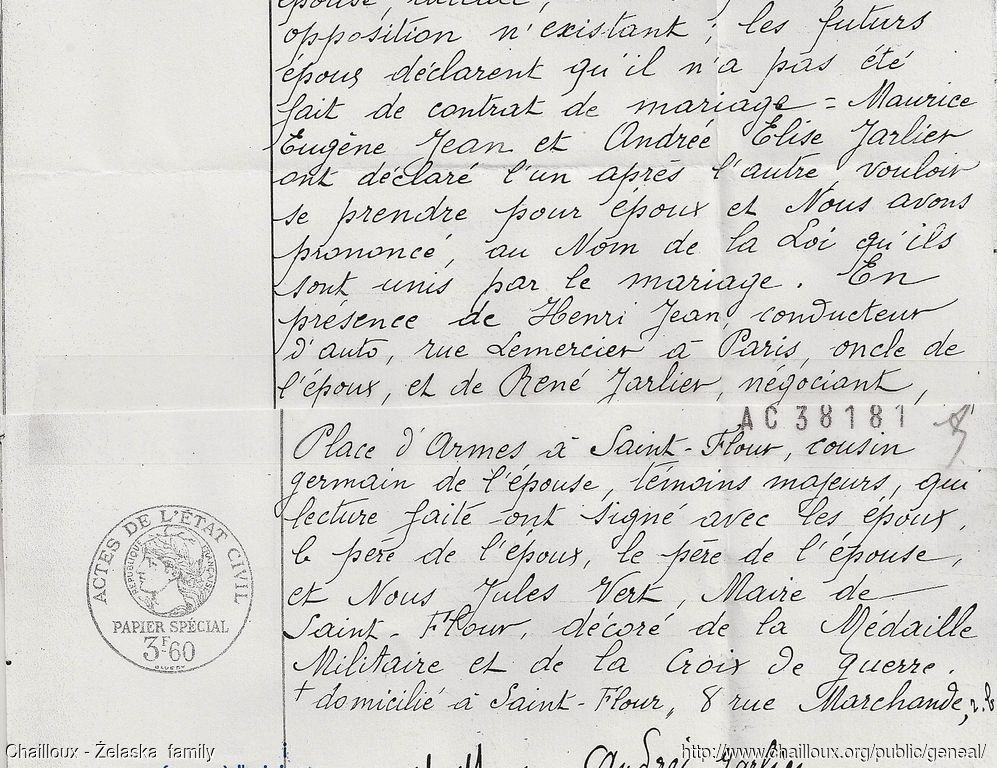 opposition n'existant ; les futurs
époux déclarent qu'il n'a pas été
fait de contrat de mariage = Maurice
Eugène Jean et Andrée Elise Jarlier
ont déclaré l'un après l'autre vouloir
se prendre pour époux et Nous avons
prononcé, au Nom de la Loi qu'ils
sont unis par le mariage. En
présence de Henri Jean, conducteur
d'auto, rue Lemercier à Paris, oncle de
l'époux, et de René Jarlier, négociant,
AC38181
Place d'Armes à Saint-Flour, cousin
germain de l'épouse, témoins majeurs, qui
lecture faite ont signé avec les époux,
le père de l'époux, le père de l'épouse,
et Nous Jules Vert, Maire de
Saint-Flour, décoré de la Médaille
Militaire et de la Croix de guerre.
+ domicilié à Saint-Flour, 8 rue Marchande,
ACTES DE L'ÉTAT CIVIL
RÉPUBLIQUE FRANÇAISE
PAPIER SPÉCIAL
3F60
Chailloux - Želaska family
http://www.chailloux.org/public/geneal/